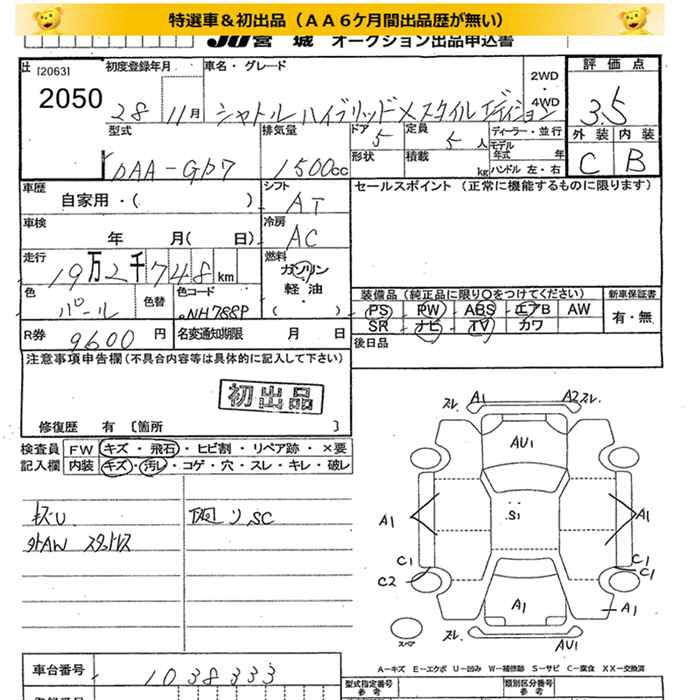 特選車&初出品(AA6ケ月間出品歴が無い)
JU宮城 オークション出品申込書
[2063] 初度登録年月 車名・グレード 2WD ・ 4WD 評価点
2050 28 11月 シャトル ハイブリッドX スタイルエディション 3.5
型式 排気量 ドア 5 定員 5人 ディーラー・並行 外装 内装
DAA-GP7 1500cc 形状 積載 kg モデル年式 年 ハンドル 左・右 C B
車歴 シフト セールスポイント (正常に機能するものに限ります)
自家用・( ) AT
車検 冷房
年 月( 日) AC
走行 燃料
19万2千748km ガソリン
色 色替 色コード 軽・油 装備品 (純正品に限り○をつけてください) 新車保証書
パール NH788P ( ) PS PW ABS エアB AW 有・無
R券 9600円 名変通知期限 月 日 SR ナビ TV カワ
後日品
注意事項申告欄(不具合内容等は具体的に記入して下さい)
初出品
修復歴 有 [箇所 ]
検査員 FW キズ・飛石・ヒビ割・リペア跡・×要
記入欄 内装 キズ・汚レ・コゲ・穴・スレ・キレ・破レ
キズU
外AW スタッドレス
下回リSC
スレ A1 A2 スレ
AU1
A1 S1 A1
C1 C1
C2 C1
A1 A1
スペア スレ AU1
A-キズ E-エクボ U-凹み W-補修跡 S-サビ C-腐食 XX-交換済
車台番号 1038333
型式指定番号 参考 類別区分番号 参考